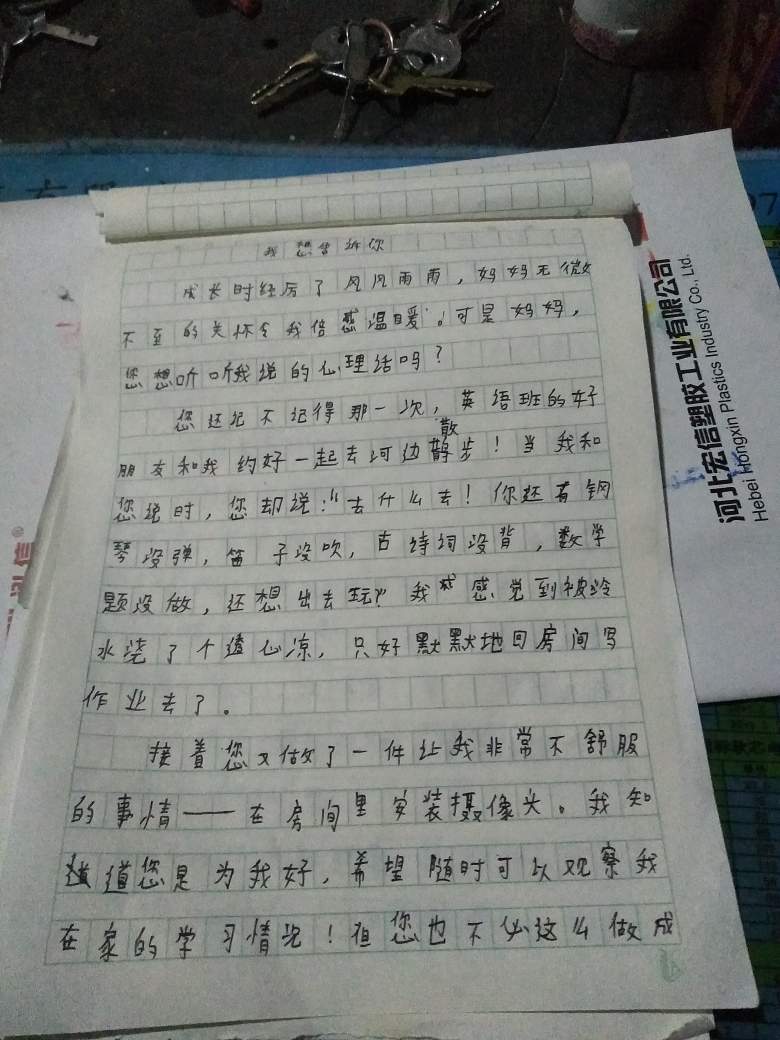 我想告诉你
成长时经历了风风雨雨，妈妈无微
不至的关怀令我倍感温暖。可是妈妈，
您想听听我说的心理话吗？
您还记不记得那一次，英语班的好
朋友和我约好一起去河边散步！当我和
您说时，您却说：“去什么去！你还有钢
琴没弹，笛子没吹，古诗词没背，数学
题没做，还想出去玩？”我感觉到被冷
水浇了个透心凉，只好默默地回房间写
作业去了。
接着您又做了一件让我非常不舒服
的事情——在房间里安装摄像头。我知
道道您是为我好，希望随时可以观察我
在家的学习情况！但您也不必这么做成
河北宏信塑胶工业有限公司
Hebei Hongxin Plastics Industry Co., Ltd.
信®